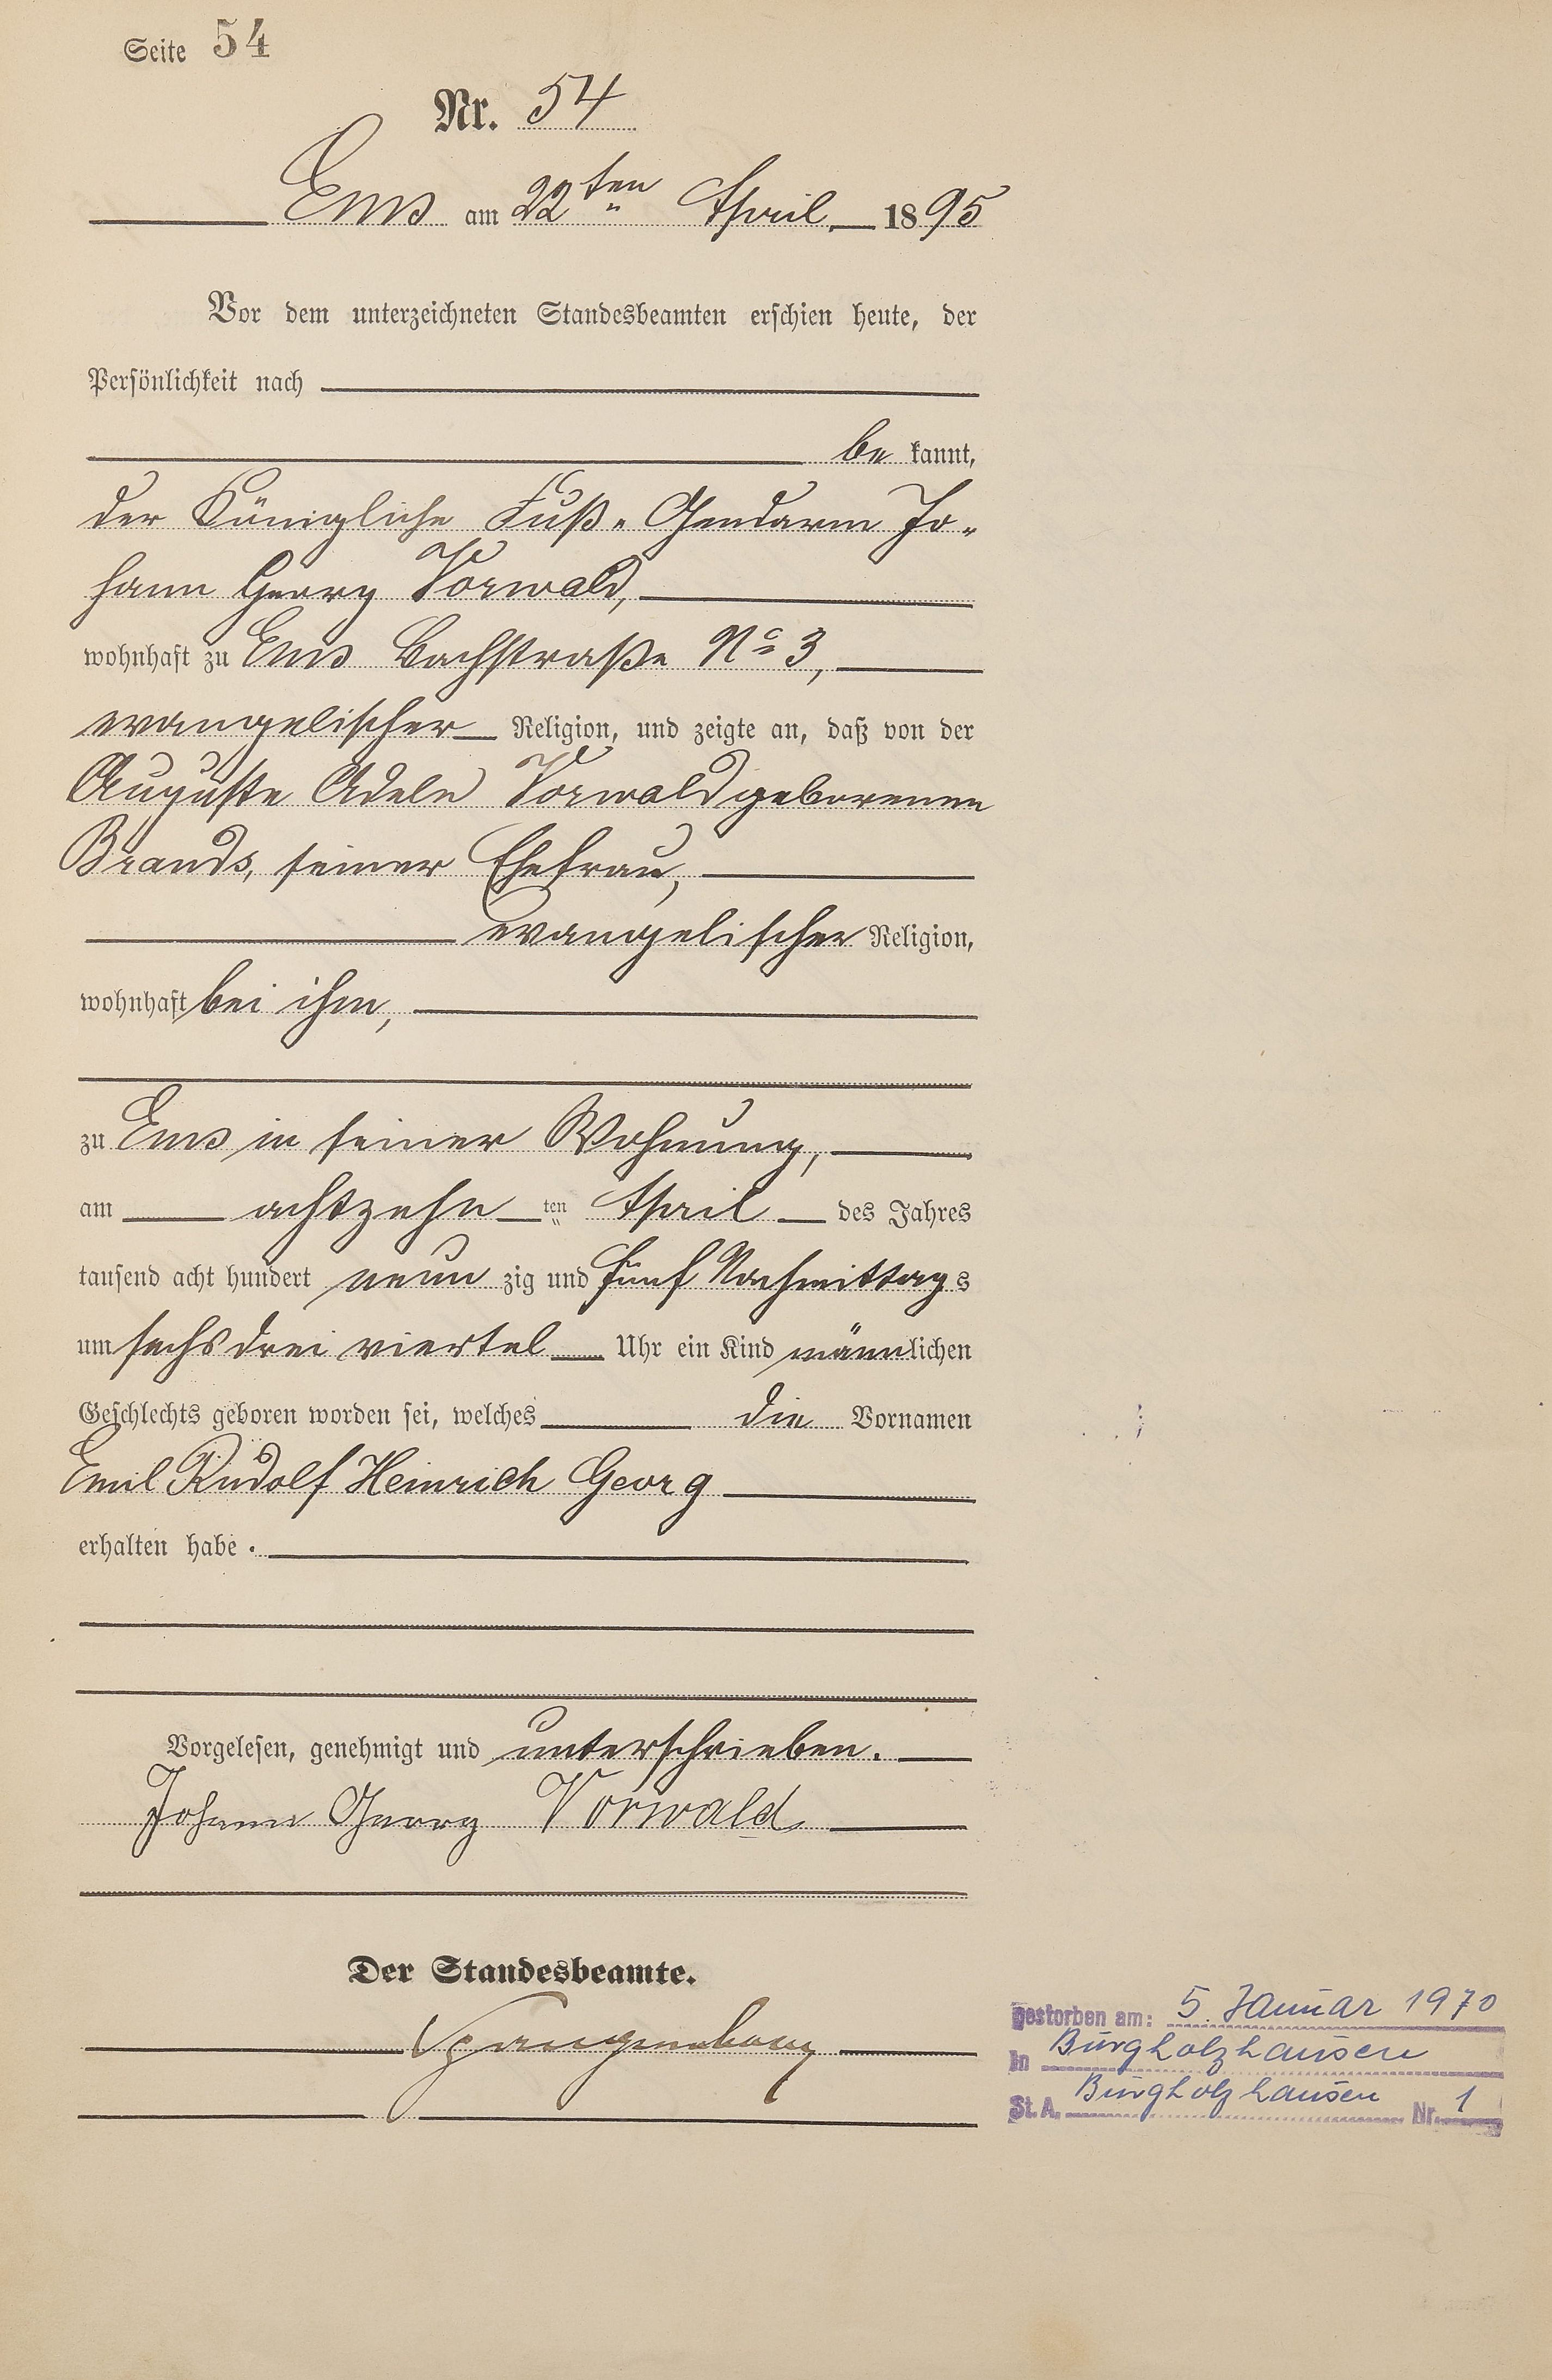 Seite 54
Nr. 54
Ems am 22ten April 1895
Vor dem unterzeichneten Standesbeamten erschien heute, der
Persönlichkeit nach
be kannt,
der Königliche Fuß-Gendarm Jo-
hann Georg Vorwald,
wohnhaft zu Ems Bachstraße No 3,
evangelischer Religion, und zeigte an, daß von der
Auguste Adele Vorwald geborenen
Brands, seiner Ehefrau,
evangelischer Religion,
wohnhaft bei ihm,
zu Ems in seiner Wohnung,
am achtzehn ten April des Jahres
tausend acht hundert neun zig und fünf Nachmittags
um sechs drei viertel Uhr ein Kind männlichen
Geschlechts geboren worden sei, welches die Vornamen
Emil Rudolf Heinrich Georg
erhalten habe.
Vorgelesen, genehmigt und unterschrieben.
Johann Georg Vorwald
Der Standesbeamte.
Spangenberg
gestorben am: 5. Januar 1970
in Burgholzhausen
St. A. Burgholzhausen Nr. 1